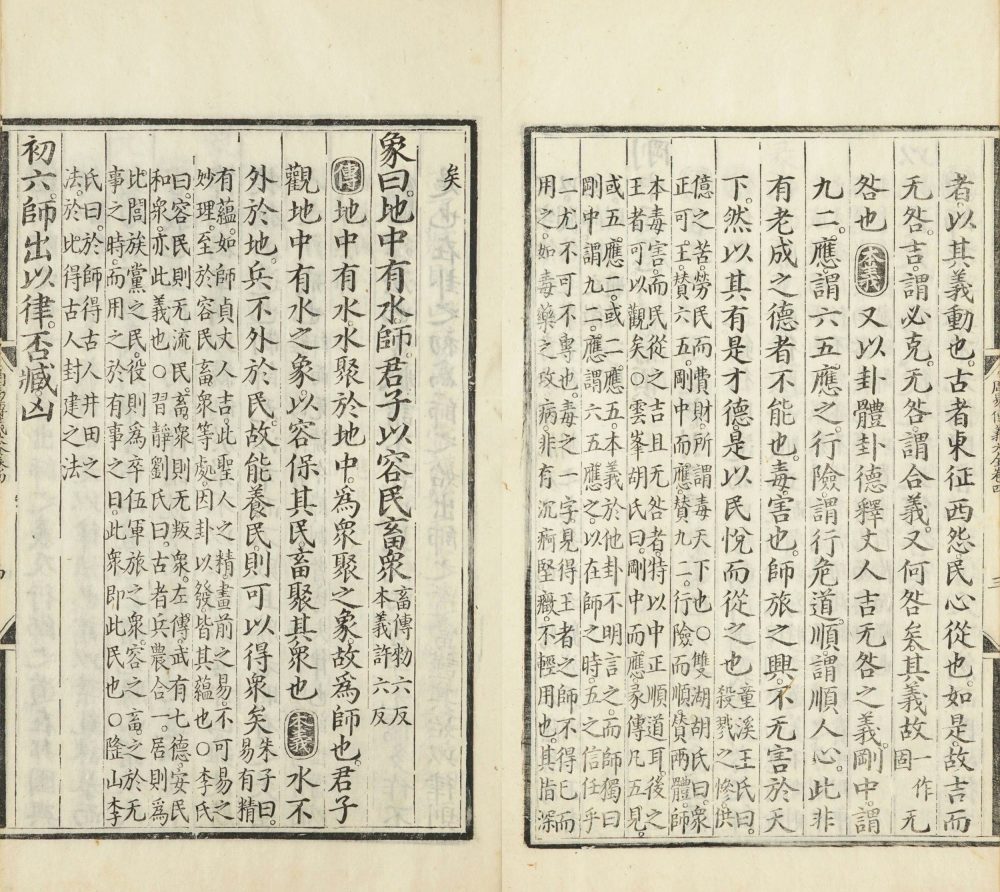 者以其義動也古者東征西怨民心從也如是故吉而
无咎吉謂必克无咎謂合義又何咎矣其義故一作固无
咎也本義又以卦體卦德釋丈人吉无咎之義剛中謂
九二應謂六五應之行險謂行危道順謂順人心此非
有老成之德者不能也毒害也師旅之興不无害於天
下然以其有是才德是以民悅而從之也
童溪王氏曰
殺戮之慘供
億之苦勞民而費財所謂毒天下也○雙湖胡氏曰衆
正可王贊六五剛中而應贊九二行險而順贊兩體師
本毒害而民從之吉且无咎者特以中正順道耳後之
王者可以觀矣○雲峯胡氏曰剛中而應彖傳凡五見
或五應二或二應五本義於他卦不明言之而師獨曰
剛中謂九二應謂六五應之以在師之時五之信任乎
二尤不可不專也毒之一字見得王者之師不得已而
用之如毒藥之攻病非有沉痾堅癥不輕用也其指深
矣
象曰地中有水師君子以容民畜衆
畜傳勑六反
本義許六反
傳地中有水水聚於地中為衆聚之象故為師也君子
觀地中有水之象以容保其民畜聚其衆也本義水不
外於地兵不外於民故能養民則可以得衆矣
朱子曰
易有精
有蘊如師貞丈人吉此聖人之精畫前之易不可易之
妙理至於容民畜衆等處因卦以發皆其蘊也○李氏
曰容民則无流民畜衆則无叛衆左傳武有七德安民
和衆亦此義也○習靜劉氏曰古者兵農合一居則為
比閭族黨之民役則為卒伍軍旅之衆容之畜之於无
事之時而用之於有事之日此衆即此民也○隆山李
氏曰於師得古人井田之
法於比得古人封建之法
初六師出以律否臧凶